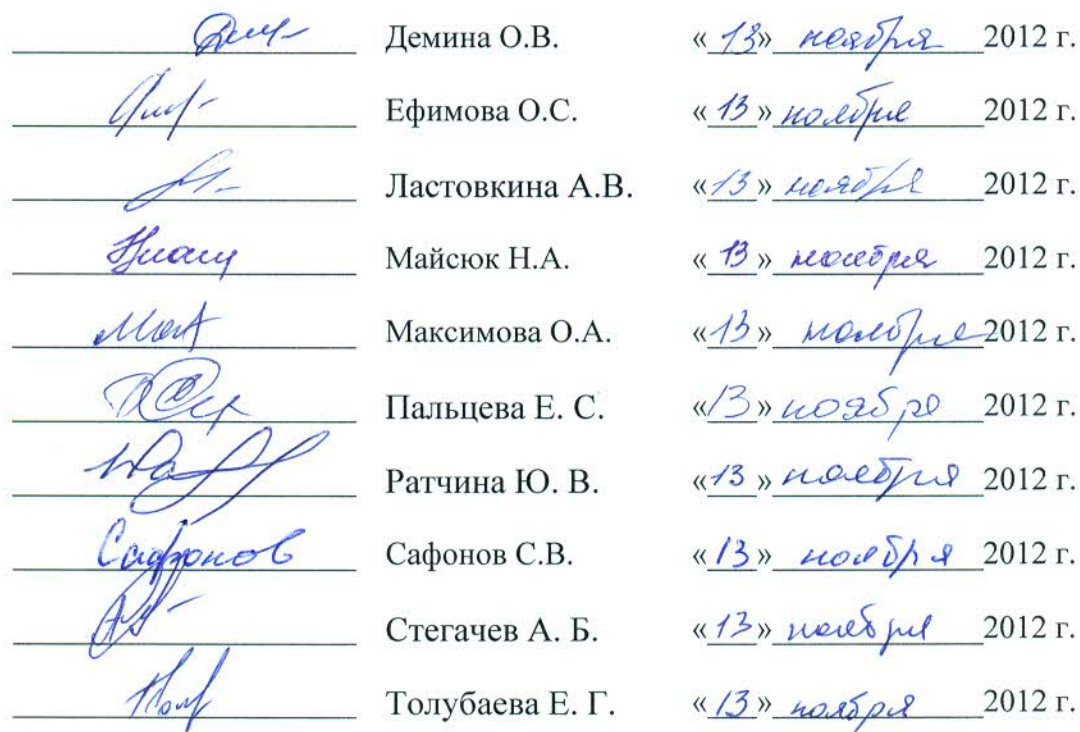 Демина О.В. «13» ноября 2012 г.
Ефимова О.С. «13» ноября 2012 г.
Ластовкина А.В. «13» ноября 2012 г.
Майсюк Н.А. «13» ноября 2012 г.
Максимова О.А. «13» ноября 2012 г.
Пальцева Е. С. «13» ноября 2012 г.
Ратчина Ю. В. «13» ноября 2012 г.
Сафонов Сафонов С.В. «13» ноября 2012 г.
Стегачев А. Б. «13» ноября 2012 г.
Толубаева Е. Г. «13» ноября 2012 г.